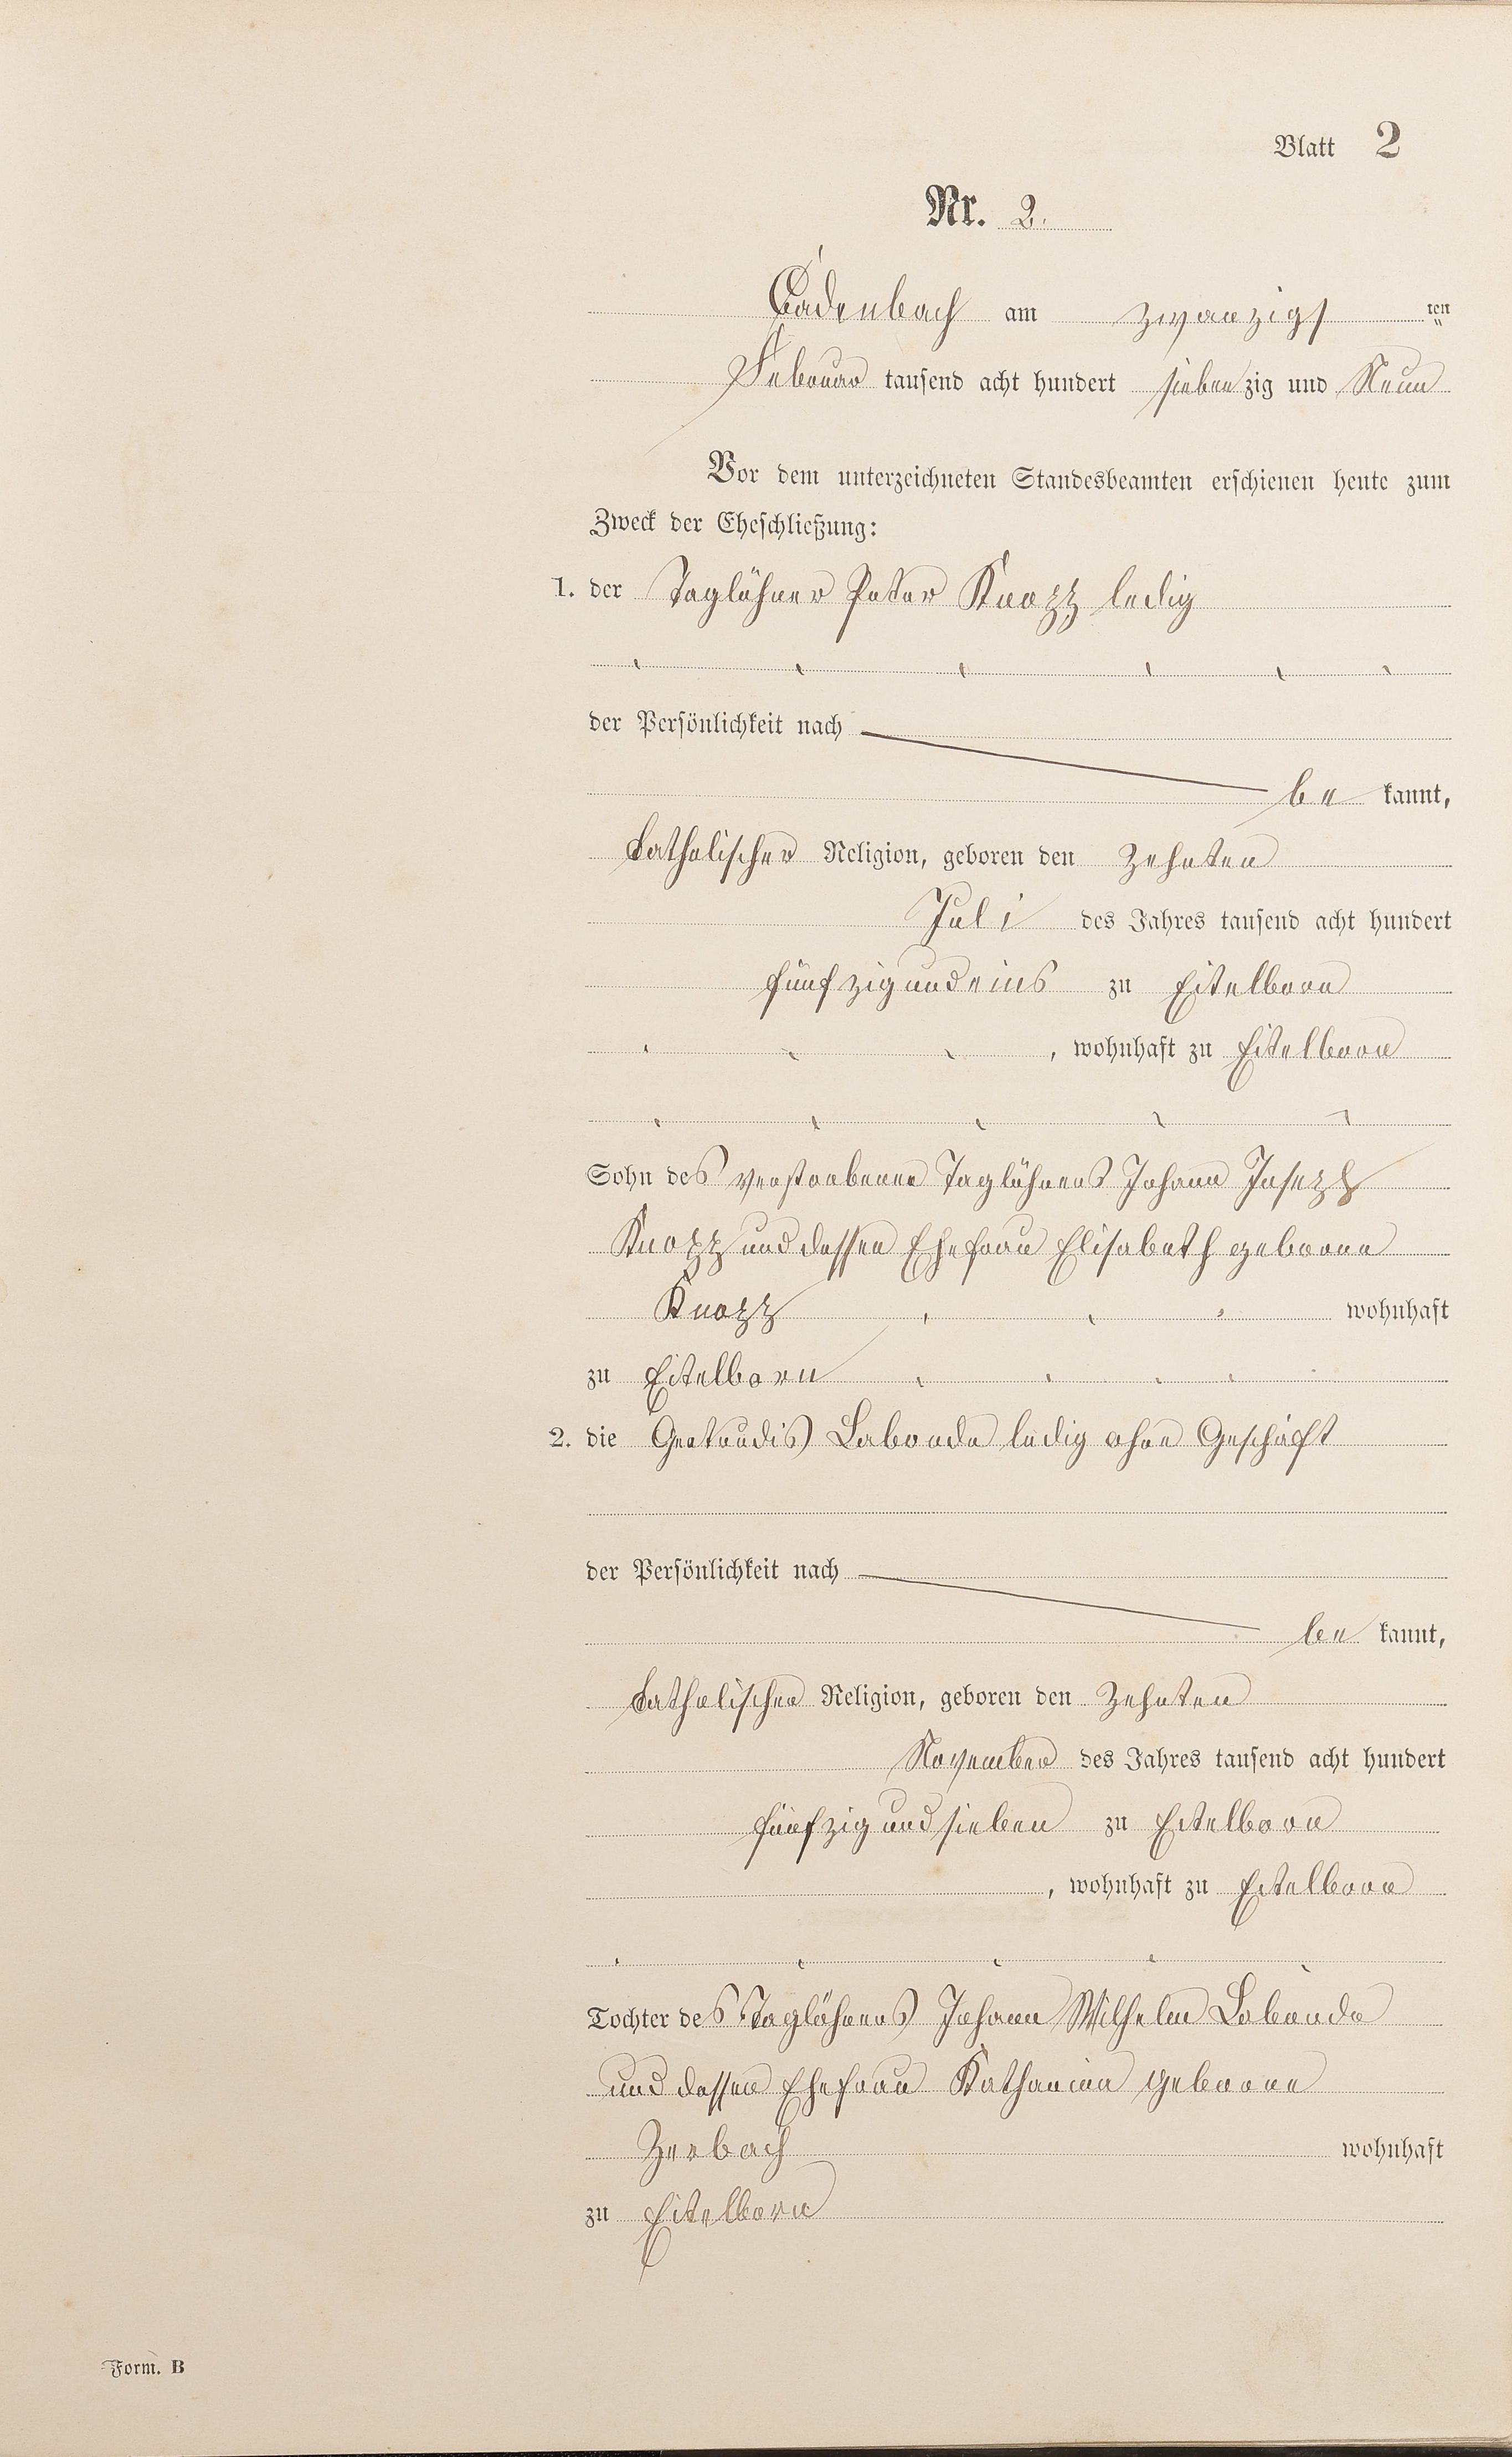 Blatt 2
Nr. 2.
Cadenbach am zwanzigsten
Februar tausend acht hundert siebenzig und Neun
Vor dem unterzeichneten Standesbeamten erschienen heute zum
Zweck der Eheschließung:
1. der Taglöhner Peter Knopp ledig
der Persönlichkeit nach
be kannt,
katholischer Religion, geboren den Zehnten
Juli des Jahres tausend acht hundert
fünfzig und eins zu Eitelborn
, wohnhaft zu Eitelborn
Sohn des verstorbenen Taglöhners Johann Joseph
Knopp und dessen Ehefrau Elisabeth geborene
Knopp wohnhaft
zu Eitelborn
2. die Gertrudis Labonde ledig ohne Geschäft
der Persönlichkeit nach
be kannt,
katholischer Religion, geboren den Zehnten
November des Jahres tausend acht hundert
fünfzig und sieben zu Eitelborn
, wohnhaft zu Eitelborn
Tochter des Taglöhners Johann Wilhelm Labonde
und dessen Ehefrau Katharina geborene
Zerbach wohnhaft
zu Eitelborn
Form. B